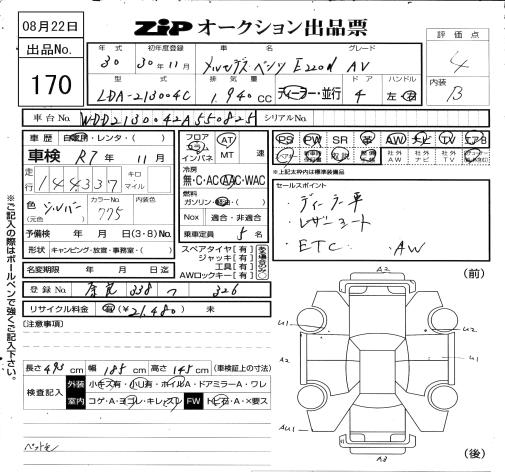 08月22日
ZiP オークション出品票
出品No.
170
評価点
4
内装
B
年式 初年度登録 車名 グレード
30 30年11月 メルセデス・ベンツ E220d AV
型式 排気量 ドア ハンドル
LDA-213004C 1,940cc ディーラー・並行 4 左・右
車台No. WDD2130042A550825 シリアルNo.
車歴 自家用・レンタ・( )
車検 R7年 11月
走行 144337 キロ マイル
色(元色) シルバー カラーNo. 775
予備検 年 月 日(3・8)No.
形状 キャンピング・放宣・事務室・( )
名変期限 年 月 日迄
フロア コラム インパネ AT MT 速
冷房 無・C・AC・AAC・WAC
燃料 ガソリン・軽油・( )
Nox 適合・非適合
乗車定員 5名
スペアタイヤ【有】
ジャッキ【有】
工具【有】
AWロックキー【有】
PS PW SR 革 AW ナビ TV エアB
社外AW 社外ナビ 社外TV
*上記太枠内は標準装備品
セールスポイント
・ディーラー車
・レザーシート
・ETC ・AW
登録No. 奈良 338 つ 326
リサイクル料金 有(¥21,480) 未
(注意事項)
長さ 493cm 幅 185cm 高さ 145cm (車検証上の寸法)
検査記入 外装 小キズ有・小凹有・ホイルA・ドアミラーA・ワレ
室内 コゲA・ヨゴレ・キレ・スレ FW トビ石・A・X要ス
※ご記入の際はボールペンで強くご記入下さい。
(前)
A2
U1
U2
A2
U1
AU1
A3
(後)